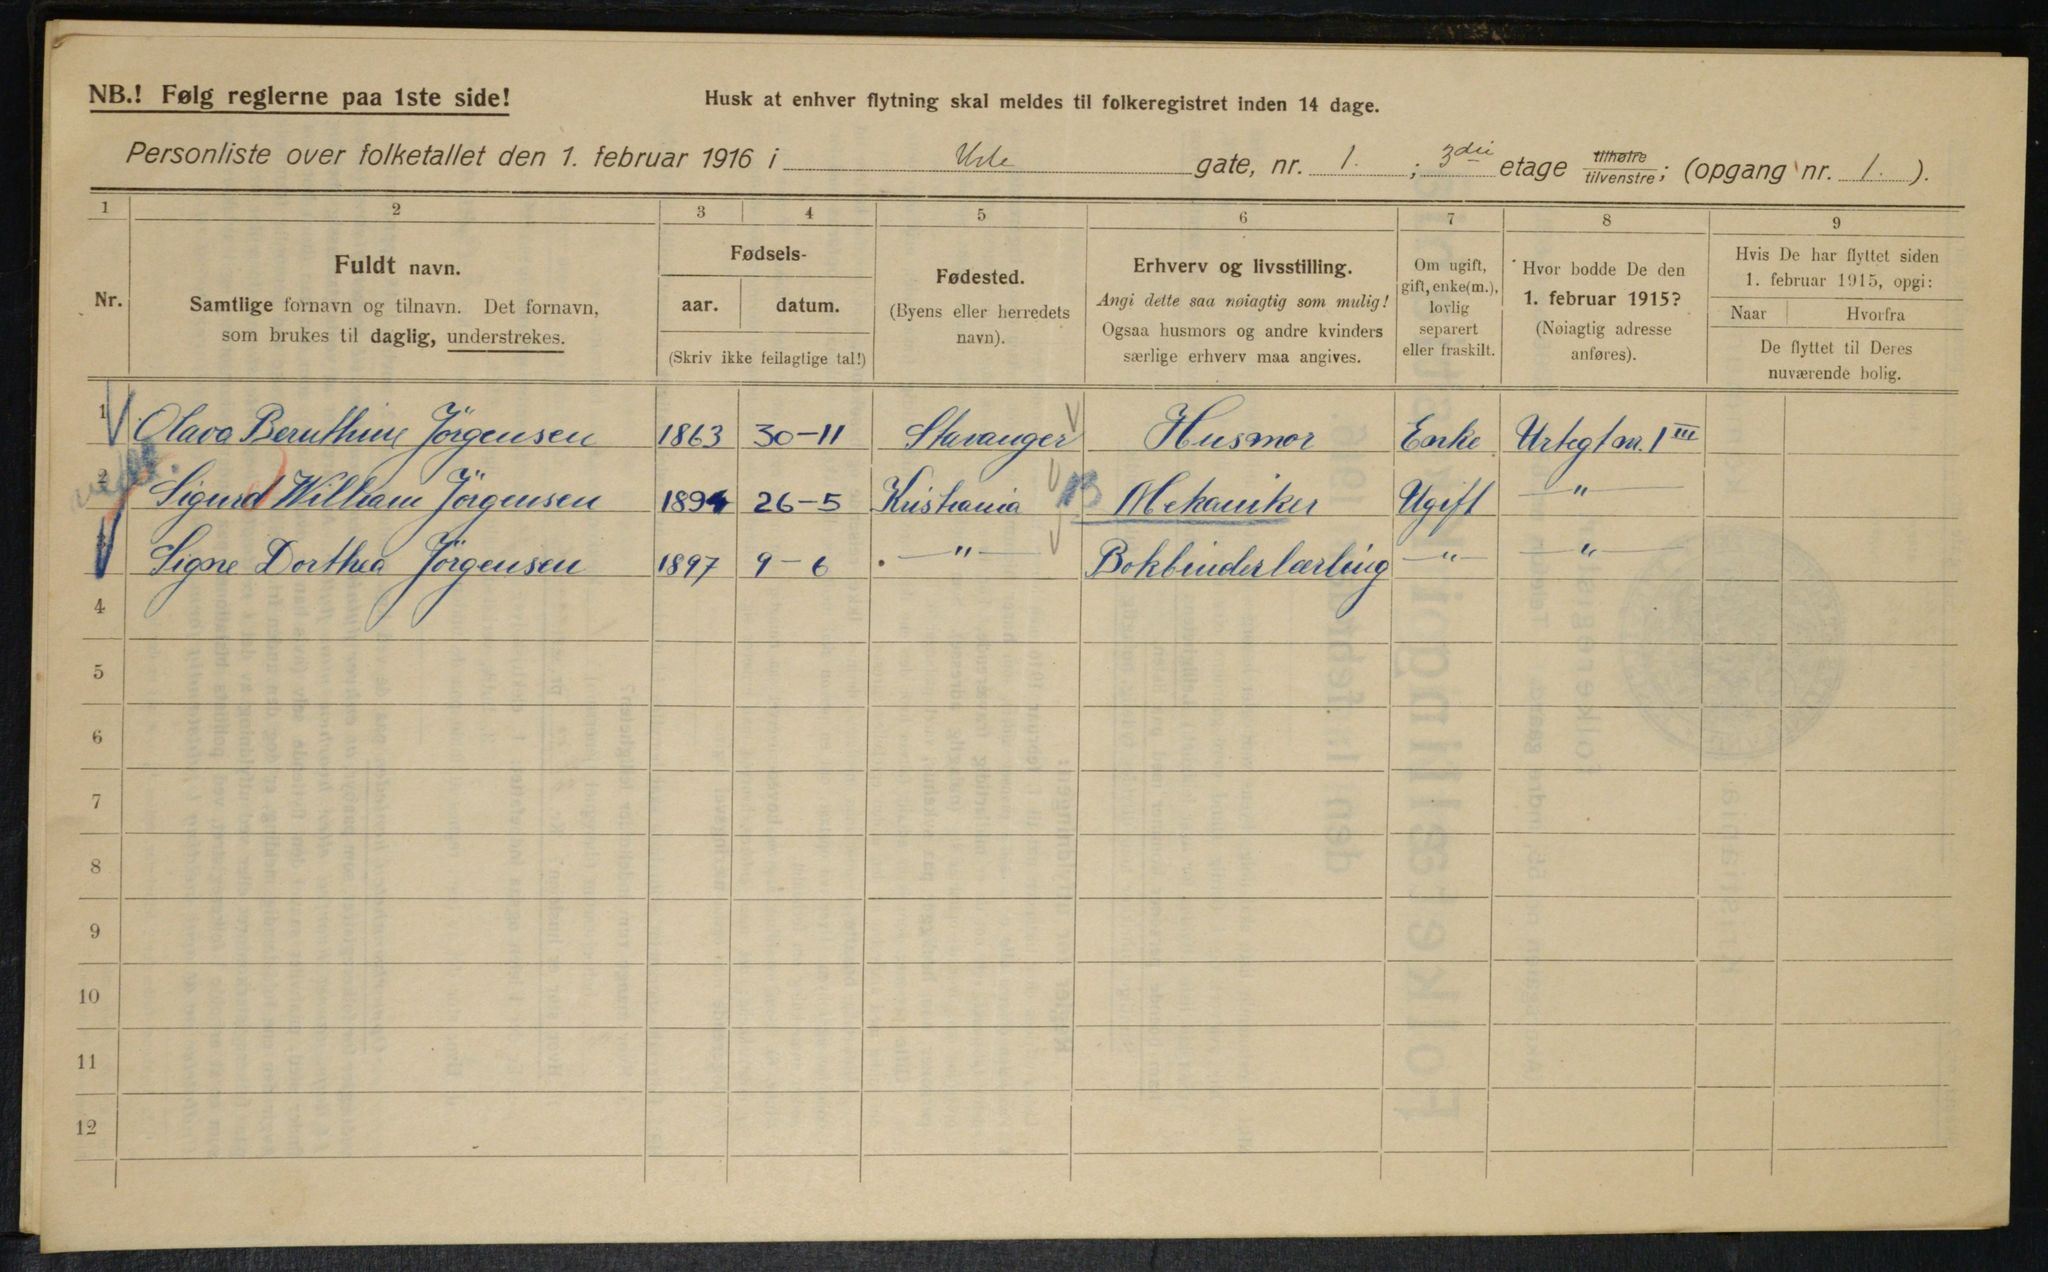 NB.! Følg reglerne paa 1ste side!
Husk at enhver flytning skal meldes til folkeregistret inden 14 dage.
Personliste over folketallet den 1. februar 1916 i Urte gate, nr. 1. ; 3die etage tilhøire tilvenstre; (opgang nr. 1. ).
1 2 3 4 5 6 7 8 9
Nr.
Fuldt navn.
Samtlige fornavn og tilnavn. Det fornavn,
som brukes til daglig, understrekes.
Fødsels-
aar. datum.
(Skriv ikke feilagtige tal!)
Fødested.
(Byens eller herredets
navn).
Erhverv og livsstilling.
Angi dette saa nøiagtig som mulig!
Ogsaa husmors og andre kvinders
særlige erhverv maa angives.
Om ugift,
gift, enke(m.),
lovlig
separert
eller fraskilt.
Hvor bodde De den
1. februar 1915?
(Nøiagtig adresse
anføres).
Hvis De har flyttet siden
1. februar 1915, opgi:
Naar Hvorfra
De flyttet til Deres
nuværende bolig.
1 Olava Beruthine Jörgensen 1863 30-11 Stavanger Husmor Enke Urtegt nr. 1 III
2 Sigurd William Jörgensen 1894 26-5 Kristiania Mekaniker Ugift —"—
Signe Dorthea Jörgensen 1897 9-6 —"— Bokbinderlærling —"— —"—
4
5
6
7
8
9
10
11
12